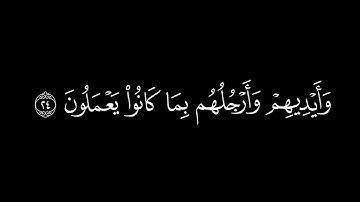 وَأَيْدِيهِمْ وَأَرْجُلُهُم بِمَا كَانُوا۟ يَعْمَلُونَ ٢٤